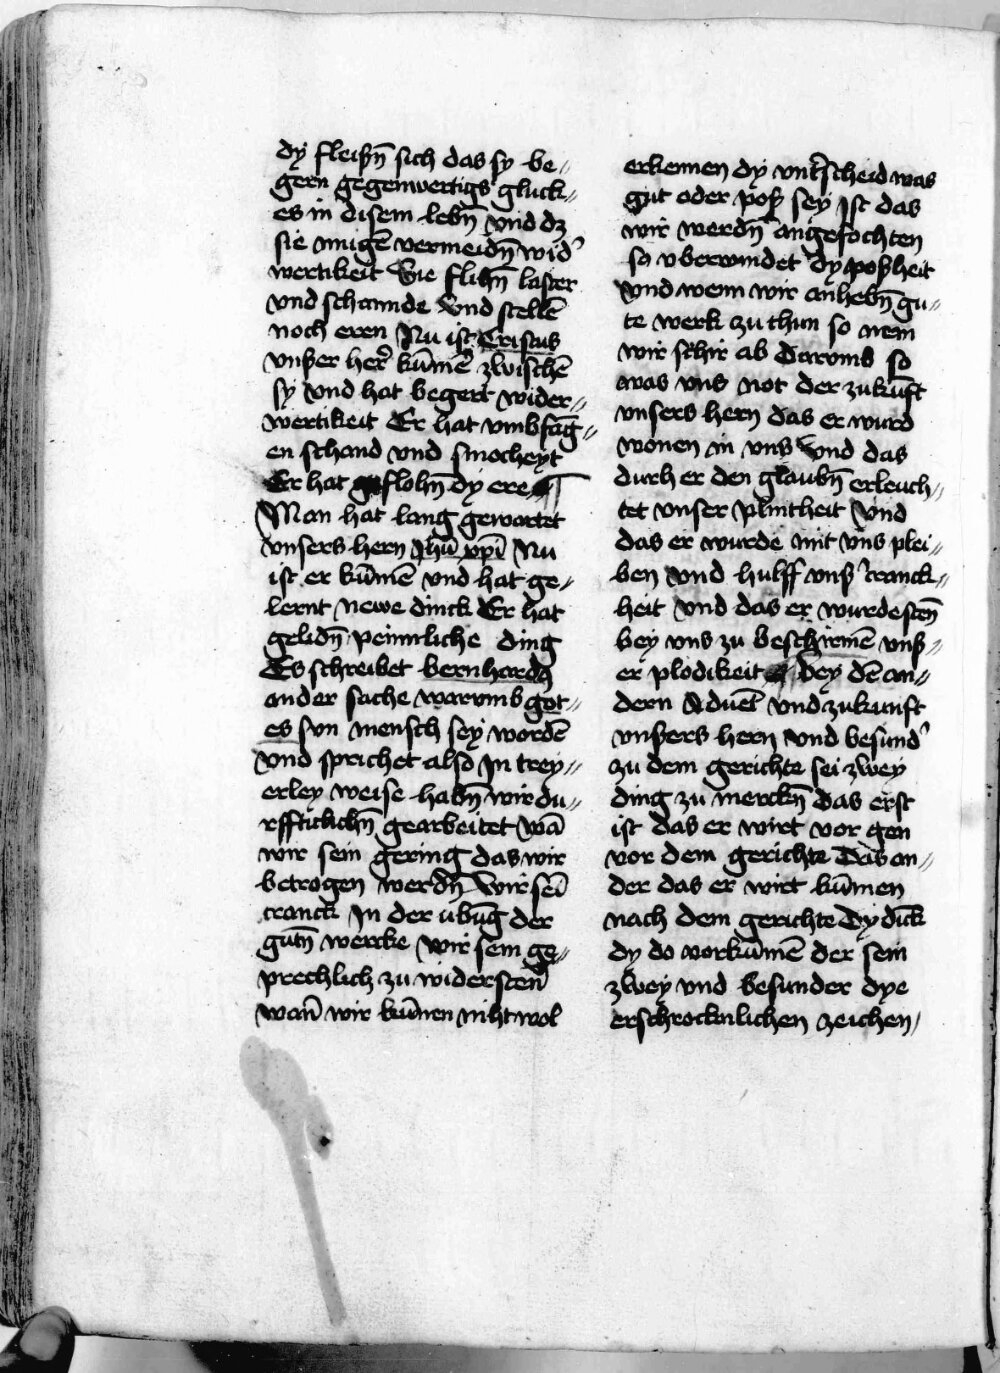 dy fleißn̄ sich das sy be⸗
gern gegenwertigs gluck⸗
es in disem lebn̄ vnd dz
sie mugē vermeidn̄ wid᾽
wertikeit Sie flihn̄ laster
vnd schannde vnd stellē
noch eren Nu ist Cristus
vnßer her᾽ kūmē zwischē
sy vnd hat begert wider⸗
wertikeit Er hat vmbfāg⸗
en schand vnd smocheyt
Er hat geflohn̄ dy ere
Man hat lang gewartet
vnsers hern Jhū xpī Nu
ist er kūmē vnd hat ge⸗
lernt newe dinck Er hat
gelidn̄ peinnliche ding
Es schreibet bernhardꝯ
ander sache warvmb got⸗
es sun mensch sey wordē
vnd sprichet also In trey⸗
erley weise habn̄ wir du⸗
rfftiklichn̄ gearbeitet wā
wir sein gering das wir
betrogen werdn̄ wir seī
cranck In der ubūg der
gutn̄ wercke wir sein ge⸗
prechlich zu widersten
wan̄ wir kūnen niht wol
erkennen dy vnt᾽scheid was
gut oder poß sey Ist das
wir werdn̄ angefochten
so vberwindet dy poßheit
vnd wenn wir anhebn̄ gu⸗
te werk zu thun so nem
wir schir ab Darvmb so
was vns not der zukūft
vnsers hern das er wurd
wonen in vns vnd das
durh er den glaubn̄ erleuch⸗
tet vnser plintheit vnd
das er wurde mit vns plei⸗
ben vnd hulff vnß᾽ cranck⸗
heit vnd das er wurde sten̄
bey vns zu beschirmē vnß⸗
er plodikeit Bey dē an⸗
dern Aduēt vnd zukunft
vnßers hern vnd besund᾽
zu dem gerichte sei zwey
ding zu merckn̄ das erst
ist das er wirt vor gen
vor dem gerichte Das an⸗
der das er wirt kūmen
nach dem gerichte Dy dīck
dy do vorkūmē der sein
zwey vnd besunder dye
erschrocknlichen zeichen